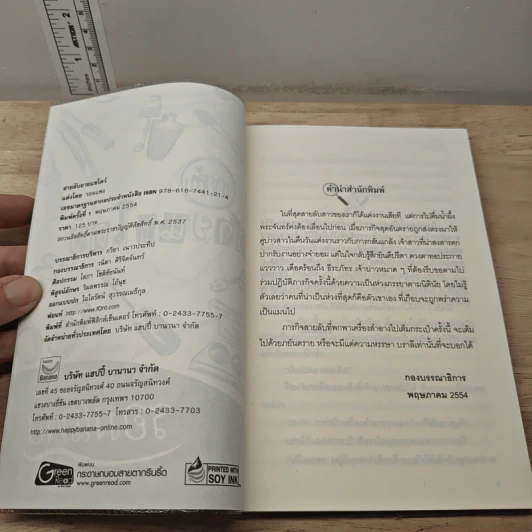 สายลับอายแชโดว์
แต่งโดย
เลขมาตรฐานสากลประจำหนังสือ ISBN 978-616-7441-21-4
พิมพ์ครั้งที่ 1 พฤษภาคม 2554
ราคา 125 บาท
สงวนลิขสิทธิ์ตามพระราชบัญญัติลิขสิทธิ์ พ.ศ. 2537
บรรณาธิการบริหาร กวิยา เนาวประทีป
กองบรรณาธิการ วนิดา ศิริจิตจันทร์
ศิลปกรรม โสภา โชติชัยนันท์
พิสูจน์อักษร
ออกแบบปก ไอโลวัลน์ สุวรรณเมธีกุล
ฟอนท์ http://www.f0nt.com
พิมพ์ที่ สำนักพิมพ์ฟิสิกส์เซ็นเตอร์ โทรศัพท์ : 0-2433-7755-7
จัดจำหน่ายทั่วประเทศโดย บริษัท แฮปปี้ บานานา จำกัด
happy
Banana
บริษัท แฮปปี้ บานานา จำกัด
เลขที่ 45 ซอยจรัญสนิทวงศ์ 40 ถนนจรัญสนิทวงศ์
แขวงบางยี่ขัน เขตบางพลัด กรุงเทพฯ 10700
โทรศัพท์ : 0-2433-7755-7 โทรสาร : 0-2433-7703
http://www.happybanana-online.com
Green
Read
พิมพ์บน
กระดาษถนอมสายตากรีนรี้ด
www.greenread.com
PRINTED WITH
SOY INK
คำนำสำนักพิมพ์
ในที่สุดสายลับสาวของเราก็ได้แต่งงานเสียที แต่การไปดื่มน้ำผึ้ง
พระจันทร์คงต้องเลื่อนไปก่อน เมื่อภารกิจสุดอันตรายถูกส่งตรงมาให้
คู่บ่าวสาวในคืนวันแต่งงานราวกับการกลั่นแกล้ง เจ้าสาวที่น่าสงสารตก
ปากรับงานอย่างจำยอม แต่ในใจกลับรู้สึกยินดีปรีดา ดวงตาทอประกาย
แวววาว เดือดร้อนถึง ธีระภัทร เจ้าบ่าวหมาด ๆ ที่ต้องรีบขอตามไป
ร่วมปฏิบัติภารกิจครั้งนี้ด้วยความเป็นห่วงภรรยาตามนิตินัย โดยไม่รู้
ตัวเลยว่าคนที่น่าเป็นห่วงที่สุดก็คือตัวเขาเอง ที่เกือบจะถูกพร่าความ
เป็นแมนไป
ภารกิจสายลับที่พกพาเครื่องสำอางไปเต็มกระเป๋าครั้งนี้ จะเต็ม
ไปด้วยภยันตราย หรือจะมีแต่ความหรรษา บราลีเท่านั้นที่จะบอกได้
กองบรรณาธิการ
พฤษภาคม 2554